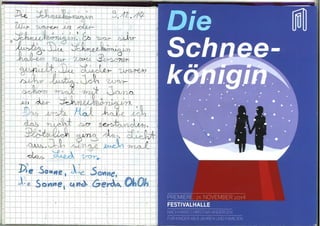 Die Schneekönigin 9.12.14
Wir waren in der
„Schneekönigin". Es war sehr
lustig. Die Schneekönigin
haben nur zwei Personen
gespielt. Die Lieder waren
sehr lustig. Ich war
schon mal mit Jana
in der Schneekönigin.
Das erste Mal habe ich
das nicht so verstanden.
Plötzlich ging das Licht
aus. Ich singe euch mal
das Lied vor.
Die Sonne, die Sonne,
die Sonne, und Gerda OhOh
Die
Schnee-
königin
PREMIERE NOVEMBER 2014
FESTIVALHALLE
NACH HANS CHRISTIAN ANDERSEN
FÜR KINDER AB 6 JAHREN UND FAMILIEN